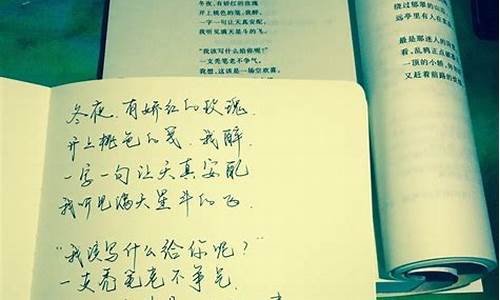 冬夜,有娇红的玫瑰
开上桃色的笺,我醉,
一字一句让天真安配,
我听见满天星斗的飞。
"我该写什么给你呢?"
一支秃笔老不争气。
我想,这该是一场空欢喜。
绕过郁翠的山
远亭里有人在
最是那迷人的
看,乱鸦正点破
一顶的小轿,
又赶着前路的
冬夜,有娇红的玫瑰,
开上桃色的笺,我醉,
一字一句让天真安配
我听见满天星斗的飞。
"我该写什么给你呢?"
一支秃笔老不争气。